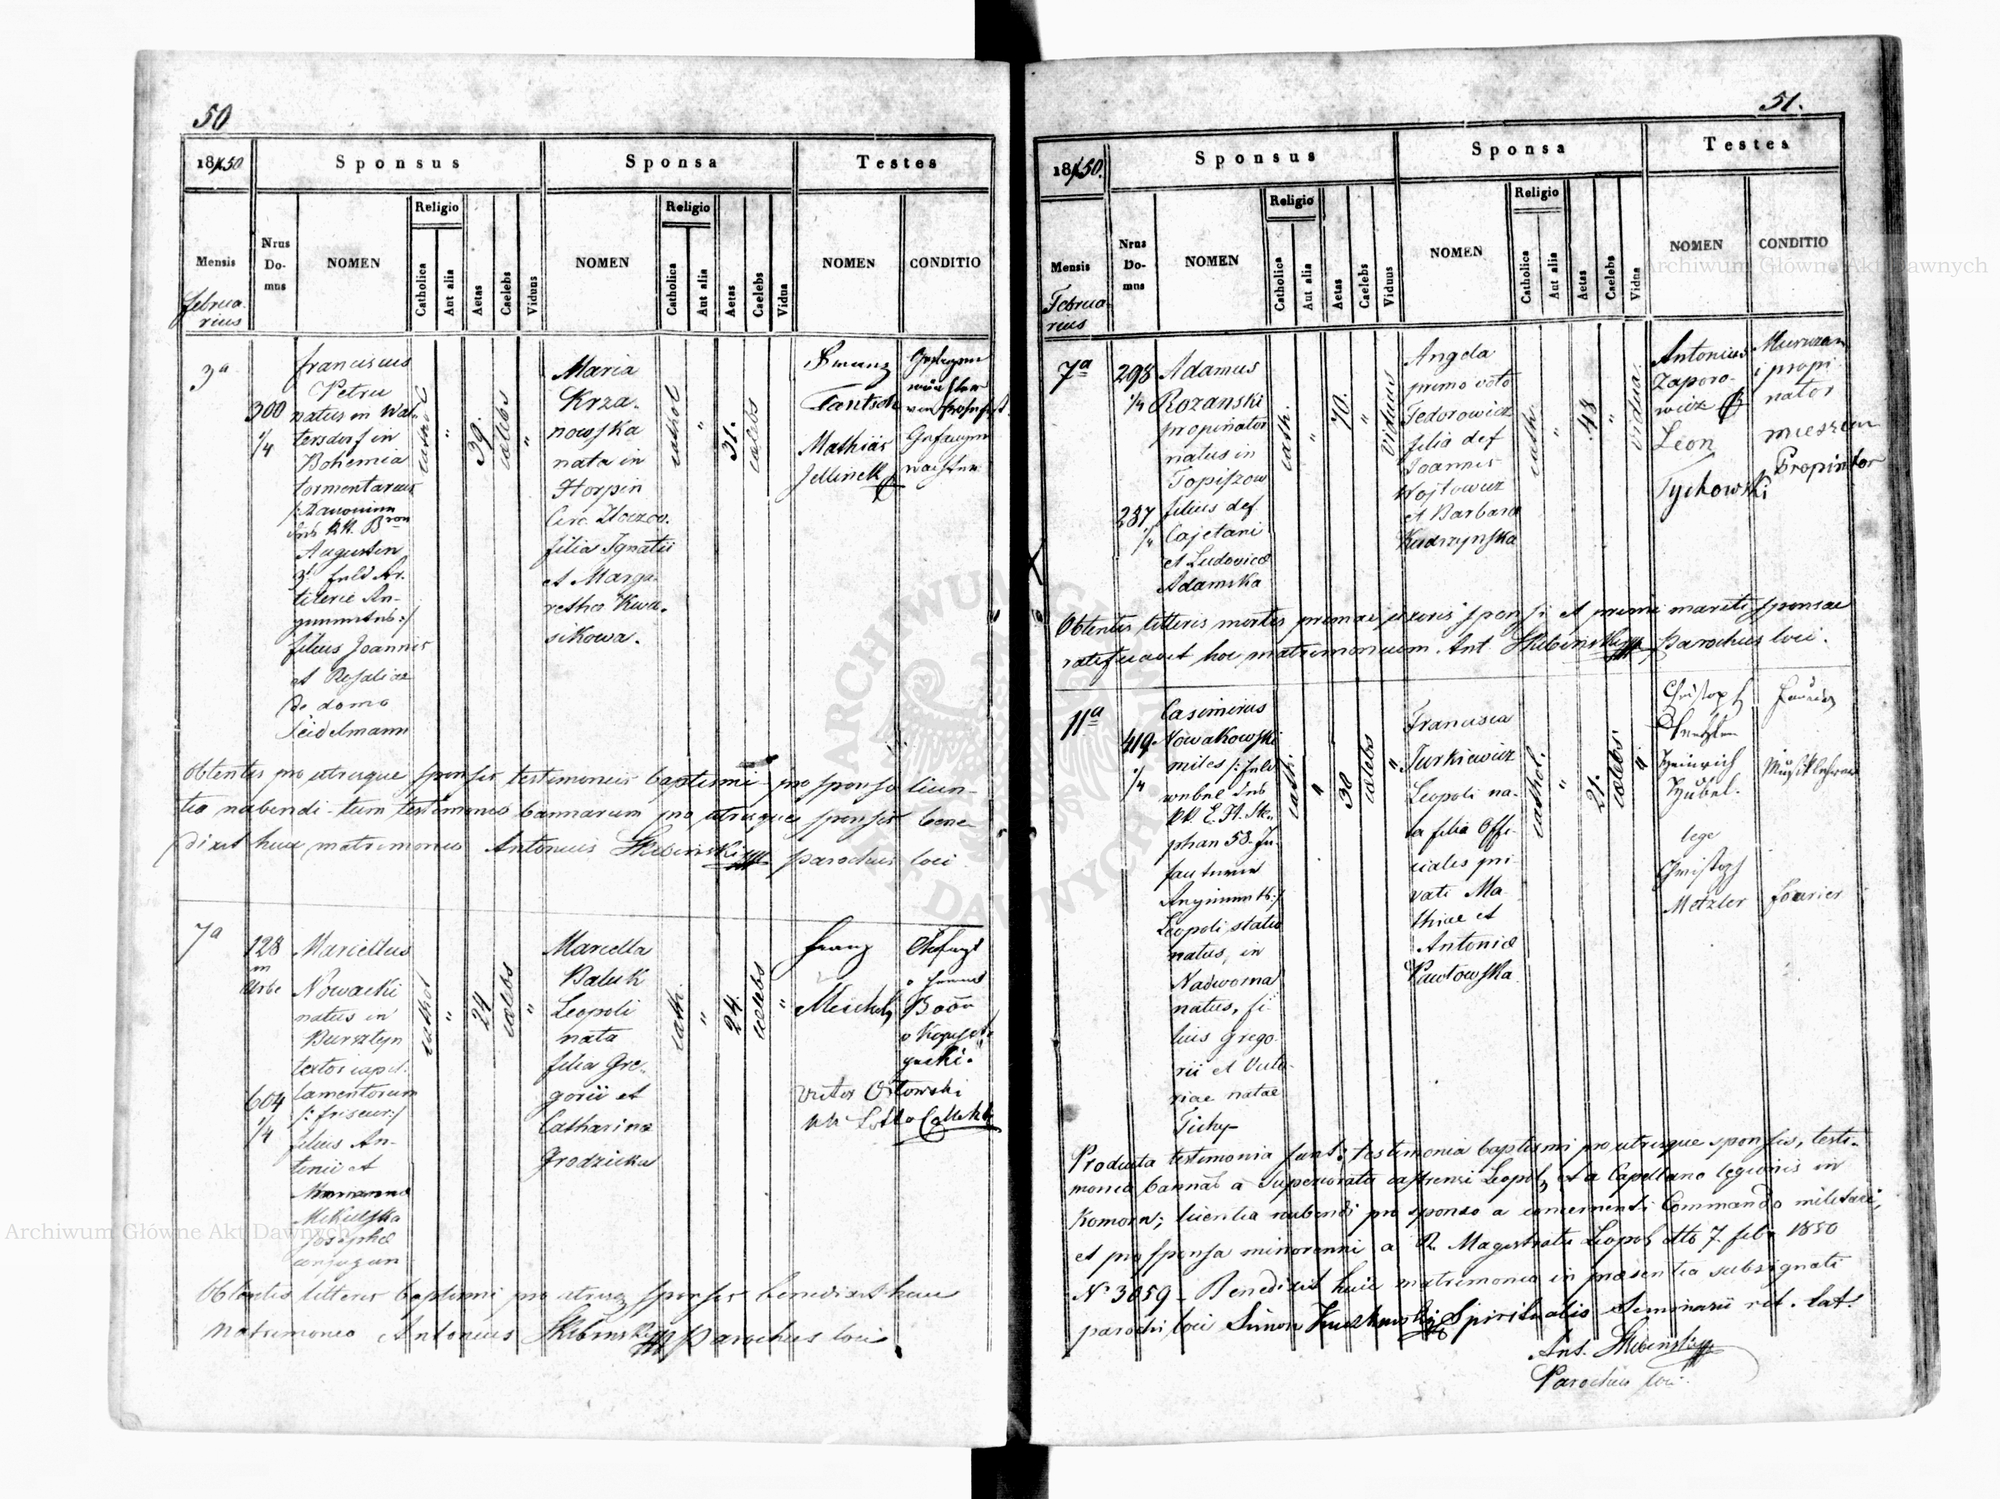 50
1850
Sponsus
Sponsa
Testes
Mensis
Nrus Domus
NOMEN
Religio
Catholica
Aut alia
Aetas
Caelebs
Viduus
NOMEN
Religio
Catholica
Aut alia
Aetas
Caelebs
Vidua
NOMEN
CONDITIO
Februa
rius
3a
300
1/4
Franciscus
Petru
natus in Wal
tersdorf in
Bohemia
tormentarius
Augustin
filius Joannis
et Rosaliae
de domo
Seidelmann
cathol
"
39.
caelebs
"
Maria
Krza-
nowska
nata in
Horpin
Circ. Złoczov.
filia Ignatii
et Marga
retha Kwa-
sikowa.
cathol
"
31.
caelebs
Franz
Tantsch
Mathias
Jellinek
Obtentis pro utrisque sponsis testimoniis baptismi pro sponso licen-
tia nubendi tum testimonio bannorum pro utrisque sponsis bene-
dixit huic matrimonio Antonius Skibinski parochus loci
7a
128
in
Urbe
604
1/4
Marcellus
Nowacki
natus in
Bursztyn
textor capil
lamentorum
/:friseur:/
filius An-
tonii et
Marianna
Josepha
conjugum
cathol
"
24
caelebs
"
Marcella
Baluk
Leopoli
nata
filia Gre-
gorii et
Catharina
Grodzicka
cath.
"
24.
caelebs
"
Franz
Victor Ostowski
Obtentis litteris baptismi pro utrisq sponsis benedixit huic
Matrimonio Antonius Skibinski parochus loci
51.
1850.
Sponsus
Sponsa
Testes
Mensis
Nrus Domus
NOMEN
Religio
Catholica
Aut alia
Aetas
Caelebs
Viduus
NOMEN
Religio
Catholica
Aut alia
Aetas
Caelebs
Vidua
NOMEN
CONDITIO
Februa
rius
7a
298
1/4
237
1/4
Adamus
Rozanski
propinator
natus in
Topiszow
filius def
Cajetani
et Ludovica
Adamska
cath.
"
70.
"
viduus
Angela
primo voto
Fedorowicz
filia def
Joannis
Wojtowicz
et Barbara
Kudrzynska
cath.
"
48
"
vidua.
Antonius
Zaporo-
wicz
Leon
Tychowski
Murazan
i propi
nator
mieszcan
Propinator
Obtentis litteris mortis primae uxoris sponsi et primi mariti sponsae
ratificavit hoc matrimonium Ant. Skibinski parochus loci.
11a
419
1/4
Casimirus
Nowakowski
miles /:Feld
webel des
kk. E. H. Ste-
phan 58. In-
fanterie
Regiments:/
Leopoli statio
natus, in
Nadworna
natus, fi-
lius Grego
rii et Victo-
riae natae
Tichy
cath.
"
30
caelebs
"
Francisca
Turkiewicz
Leopoli na-
ta filia Offi-
cialis pri
vati Ma
thiae et
Antonia
Pawłowska
cathol.
"
21.
caelebs
"
Christoph
Heinrich
Hübel.
lege
Christoph
Metzler
Fourier
Musiklehrer
Fourier
Producta testimonia sunt: testimonia baptismi pro utrisque sponsis, testi-
monia bannor a Superioratu castrensi Leopol, et a Capellano legionis in
Komorn; licentia nubendi pro sponso a concernenti Commando militari,
et pro sponsa minorenni a R. Magistratu Leopol dtto 7. feb. 1850
N 3059 - Benedixit huic matrimonio in praesentia subsignati
parochi loci Simon Spiritualis Seminarii rit. lat.
Ant. Skibinski
Parochus loci
Archiwum Główne Akt Dawnych
Archiwum Główne Akt Dawnych